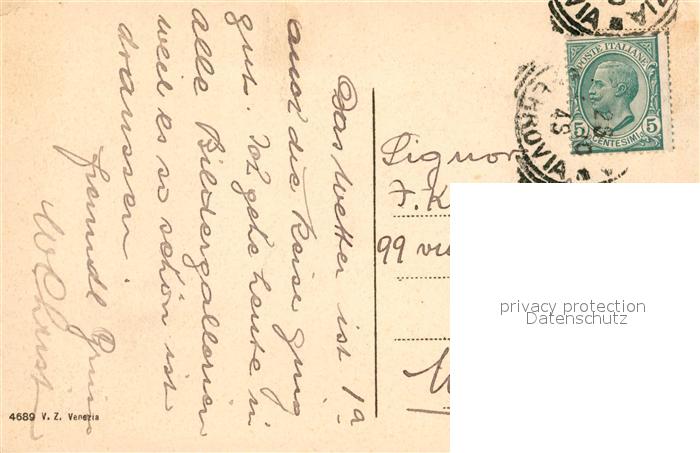 Das Wetter ist 1a
auch die Reise ging
gut. Ich gehe heute in
alle Bildergallerien
weil es so schön ist
draussen.
freundl Gruss
4689 V. Z. Venezia
Signor
F. K
99 via
M
POSTE ITALIANE
5 CENTESIMI 5
FERROVIA
privacy protection
Datenschutz